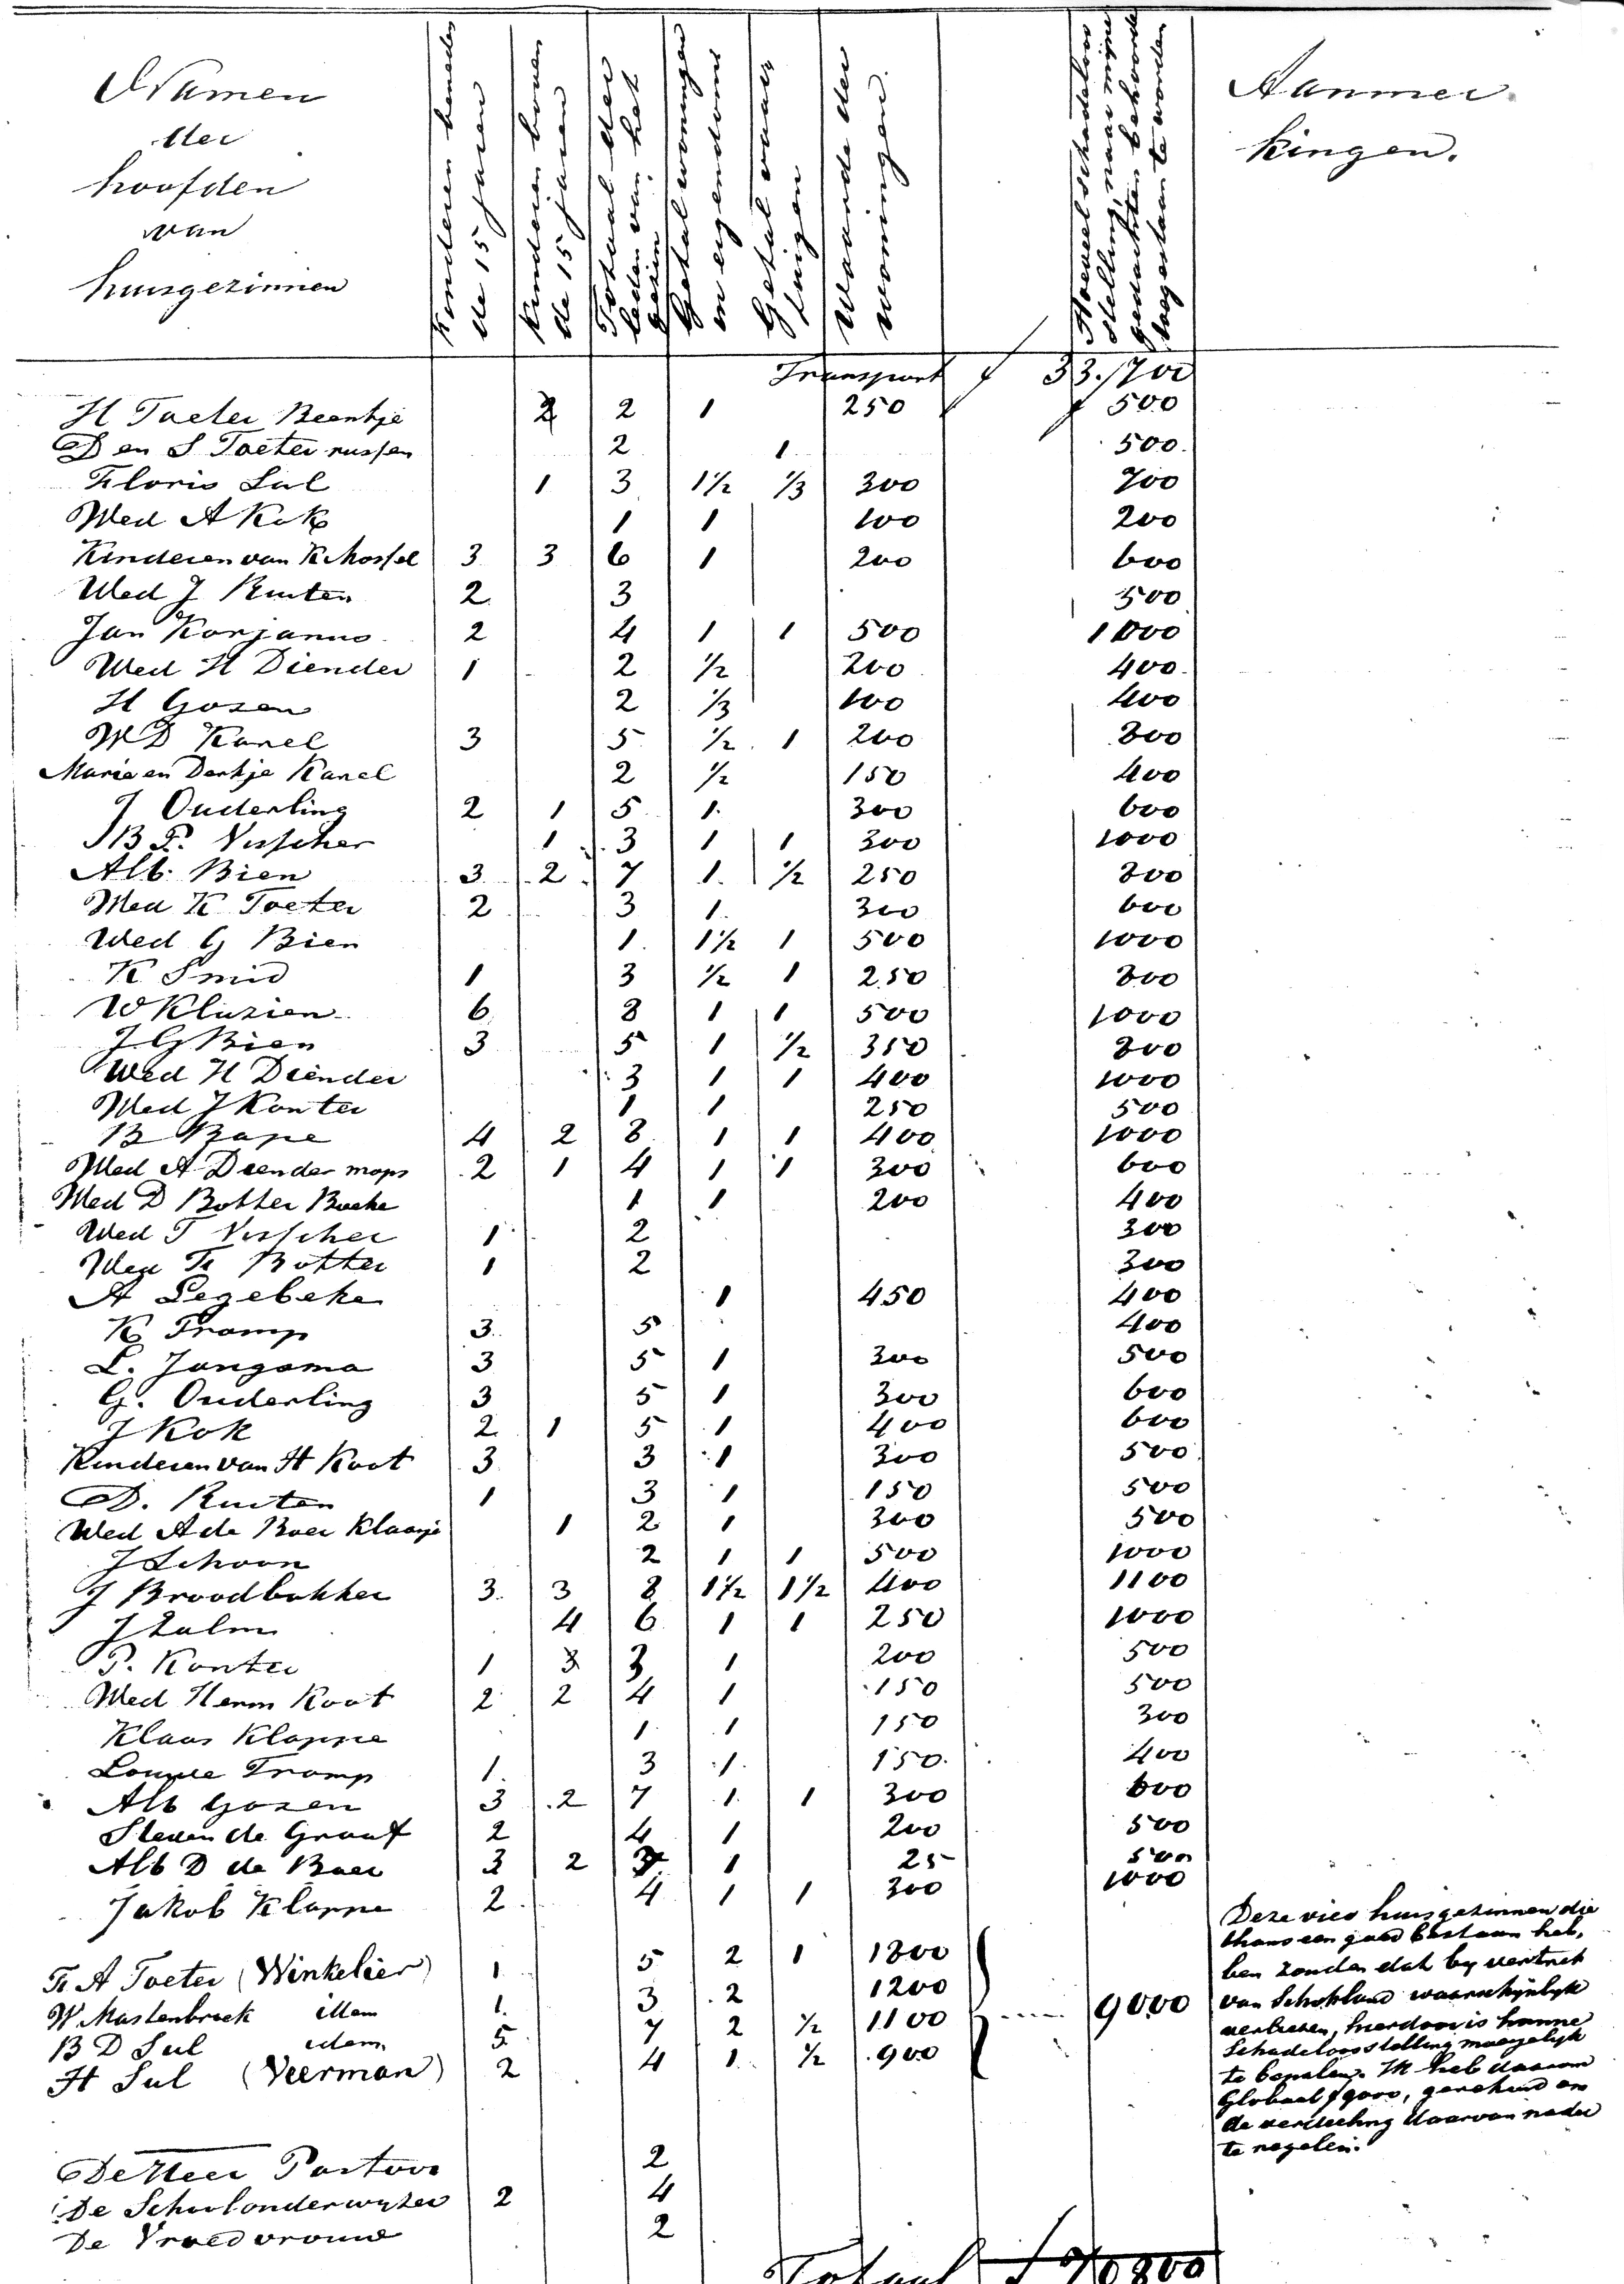 Namen
der
hoofden
van
huisgezinnen
Kinderen beneden
de 15 jaren
Kinderen boven
de 15 jaren
Totaal der
leden van het
gezin
Getal woningen
in eigendom
Getal vaar,
tuigen
Waarde der
woningen.
Hoeveel schadeloos
stelling, naar mijne
gedachten behoorde
toegestaan te worden
Aanmer
kingen.
Transport f 33.700
H Toeter Beentje 2 2 1 250 f 500
D en S Toeter russen 2 1 500.
Floris Sul 1 3 1½ ⅓ 300 700
Wed A Kok 1 1 100 200
Kinderen van K Mossel 3 3 6 1 200 600
Wed J Ruiten 2 3 500
Jan Korjanus 2 4 1 1 500 1000
Wed H Diender 1 2 ½ 200 400
H Gosen 2 ⅓ 100 400
W D Karel 3 5 ½ 1 200 800
Marie en Derkje Karel 2 ½ 150 400
J Ouderling 2 1 5 1 300 600
B P. Visscher 1 3 1 1 300 1000
Alb. Bien 3 2 7 1 ½ 250 800
Wed K Toeter 2 3 1 300 600
Wed G Bien 1 1½ 1 500 1000
K Smid 1 3 ½ 1 250 800
W Kluzien 6 8 1 1 500 1000
J G Bien 3 5 1 ½ 350 800
Wed H Diender 3 1 1 400 1000
Wed J Konter 1 1 250 500
B Bape 4 2 8 1 1 400 1000
Wed A Diender mops 2 1 4 1 1 300 600
Wed D Botter Boeke 1 1 200 400
Wed T Visscher 1 2 300
Wed Fr Botter 1 2 300
A Legebeke 1 450 400
K Tromp 3 5 400
L. Jongsma 3 5 1 300 500
G. Ouderling 3 5 1 300 600
J Kok 2 1 5 1 400 600
Kinderen van H Koot 3 3 1 300 500
D. Ruiten 1 3 1 150 500
Wed A de Boer Klaasje 1 2 1 300 500
J Schoon 2 1 1 500 1000
J Broodbakker 3 3 8 1½ 1½ 400 1100
J Zalm 4 6 1 1 250 1000
P. Konter 1 3 3 1 200 500
Wed Herm Koot 2 2 4 1 150 500
Klaas Klappe 1 1 150 300
Louwe Tromp 1 3 1 150 400
Alb Gosen 3 2 7 1 1 300 600
Steven de Graaf 2 4 1 200 500
Alb D de Boer 3 2 7 1 25 500
Jakob Klappe 2 4 1 1 300 1000
Fr A Toeter (Winkelier) 1 5 2 1 1800
W Mastenbroek idem 1 3 2 1200
B D Sul idem 5 7 2 ½ 1100
H Sul (Veerman) 2 4 1 ½ 900
9000
Deze vier huisgezinnen die
thans een goed bestaan heb,
ben zouden dat by vertrek
van Schokland waarschijnlyk
verliezen, hierdoor is hunne
Schadeloosstelling moeyelijk
te bepalen. Ik heb daarom
Globaal f 9000, gerekend om
de verdeeling daarvan nader
te regelen.
De Heer Pastoor 2
De Schoolonderwyzer 2 4
De Vroedvrouw 2
Totaal f 70800